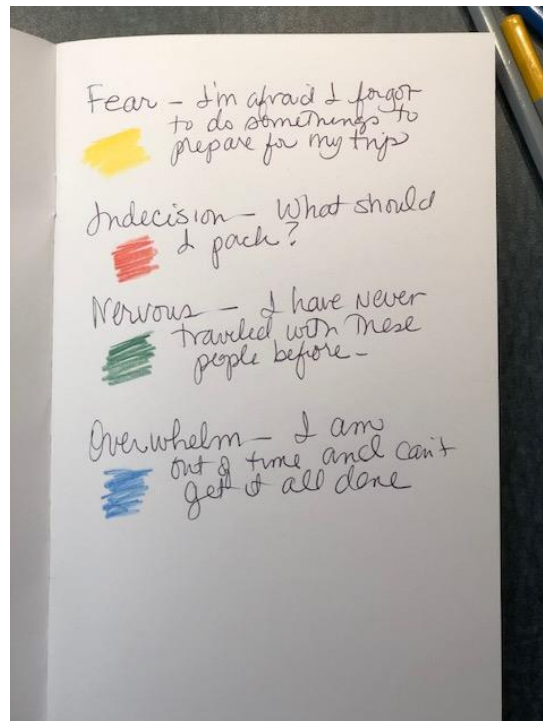 Fear – I'm afraid I forgot
to do somethings to
prepare for my trip
Indecision – What should
I pack?
Nervous – I have never
traveled with these
people before –
Overwhelm – I am
out of time and can't
get it all done